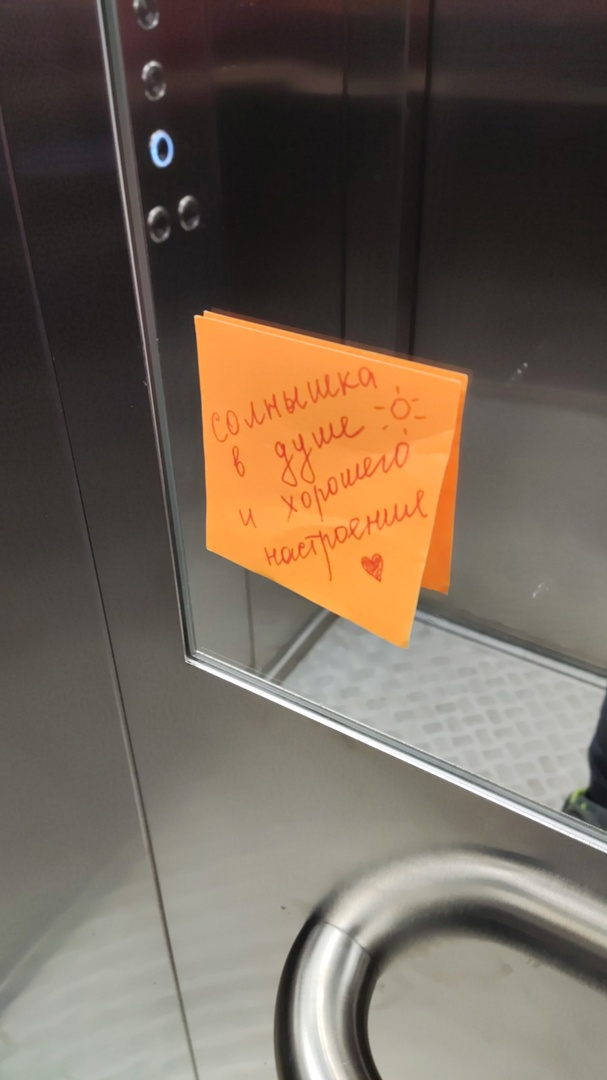 солнышка
в душе
и хорошего
настроения